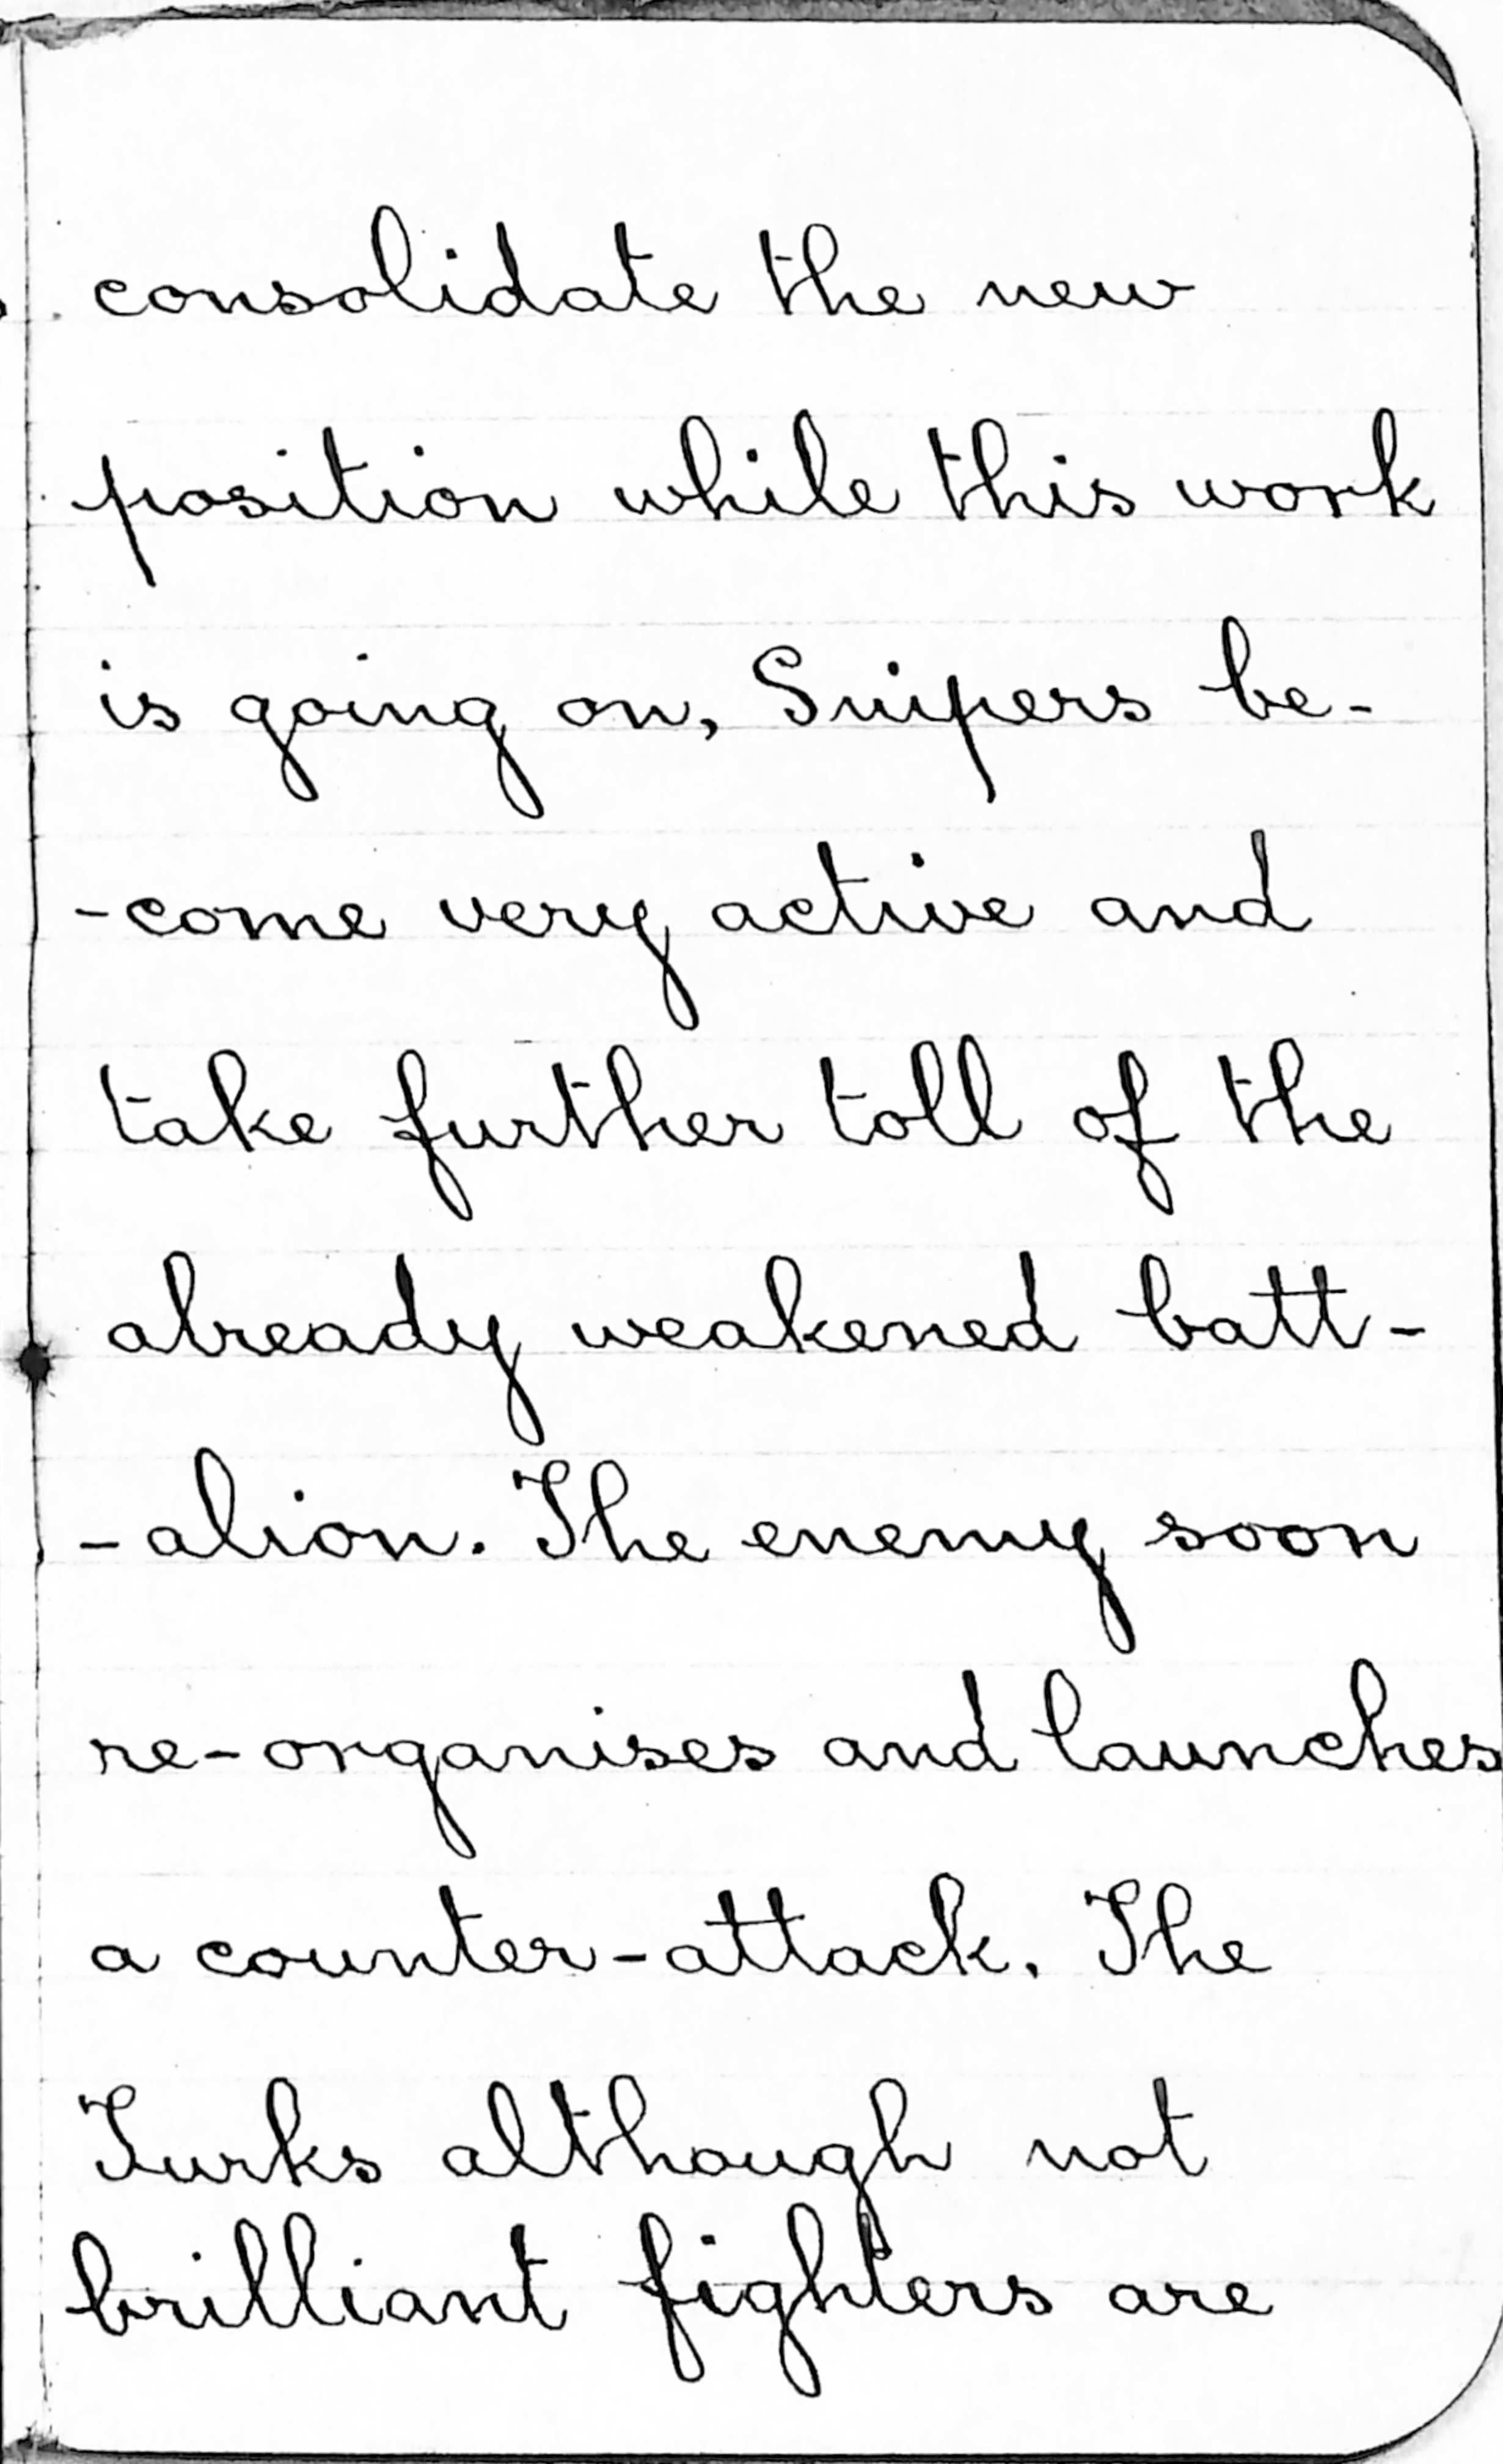 consolidate the new
position while this work
is going on, Snipers be-
-come very active and
take further toll of the
already weakened batt-
-alion. The enemy soon
re-organises and launches
a counter-attack. The
Turks although not
brilliant fighters are